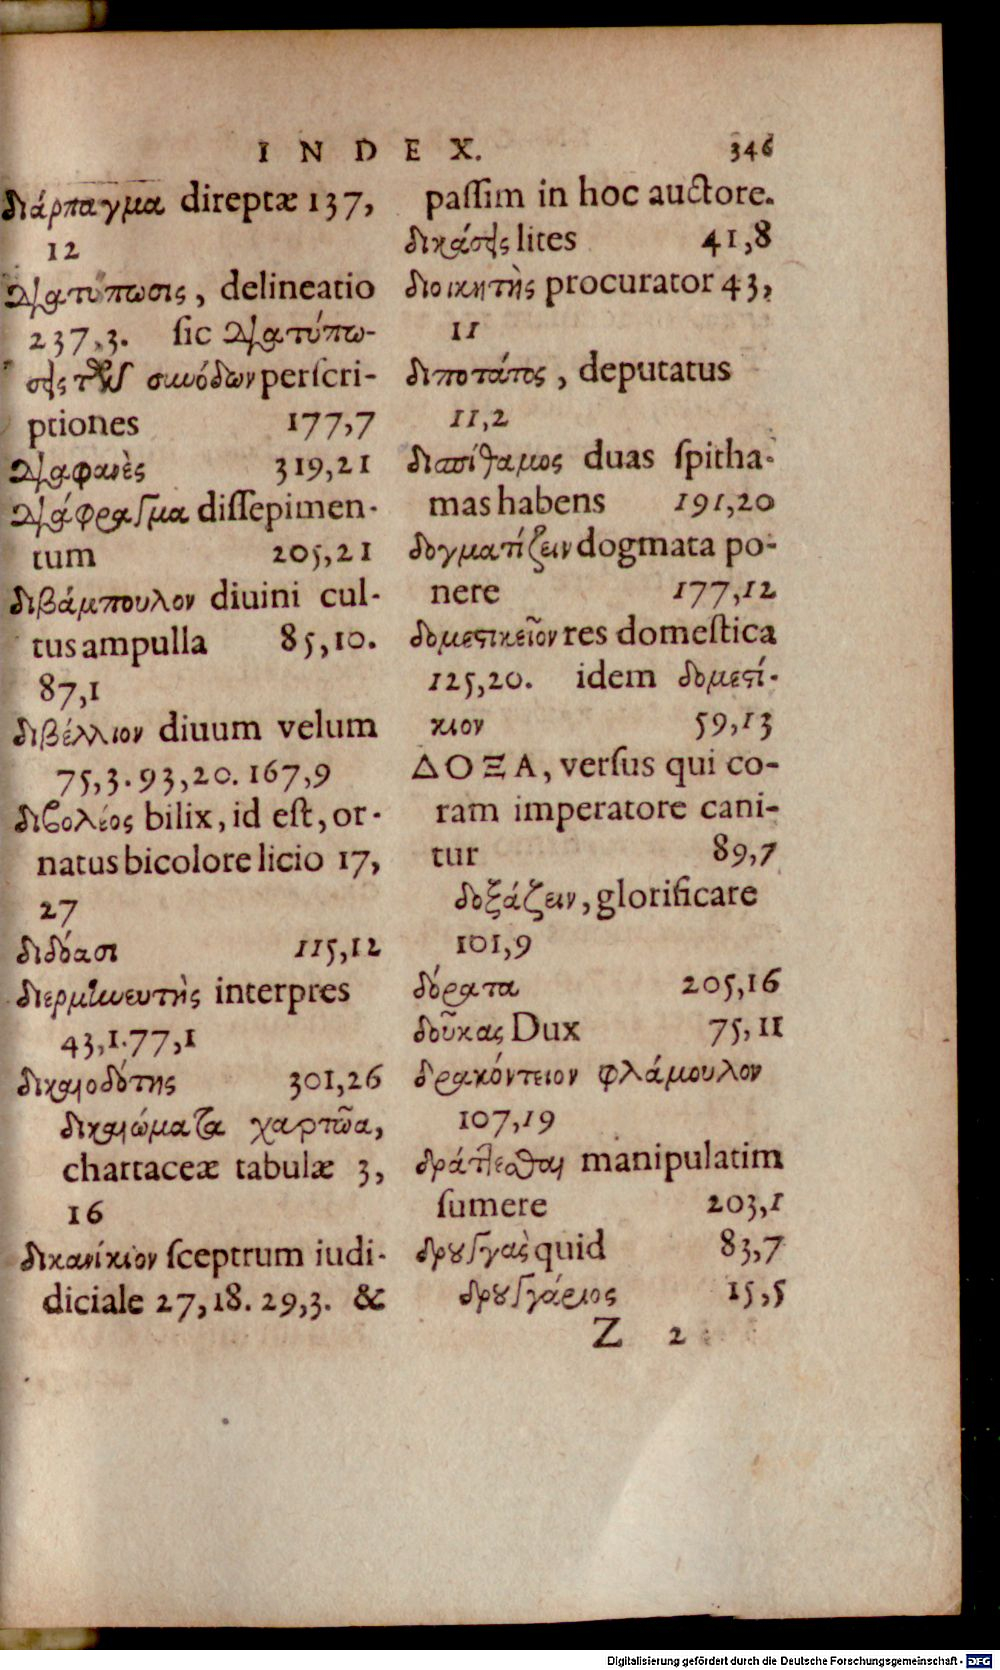 INDEX. 346
διάρπαγμα direptæ 137,
12
διατύπωσις, delineatio
237,3. ſic διατύπω-
σεις τῶν συνόδων perſcri-
ptiones 177,7
διαφανὲς 319,21
διάφραγμα diſſepimen-
tum 205,21
διβάμπουλον diuini cul-
tus ampulla 85,10.
87,1
διβέλλιον diuum velum
75,3. 93,20. 167,9
διβολέος bilix, id eſt, or-
natus bicolore licio 17,
27
διδόασι 115,12
διερμηνευτὴς interpres
43,1. 77,1
δικαιοδότης 301,26
δικαιώματα χαρτῶα,
chartaceæ tabulæ 3,
16
δικανίκιον ſceptrum iudi-
diciale 27,18. 29,3. &
paſſim in hoc auctore.
δικάσεις lites 41,8
διοικητὴς procurator 43,
11
διποτάτος, deputatus
11,2
δισπίθαμος duas ſpitha-
mas habens 191,20
δογματίζειν dogmata po-
nere 177,12
δομεστικεῖον res domeſtica
125,20. idem δομεστί-
κιον 59,13
ΔΟΞΑ, verſus qui co-
ram imperatore cani-
tur 89,7
δοξάζειν, glorificare
101,9
δόρατα 205,16
δοῦκας Dux 75,11
δρακόντειον φλάμουλον
107,19
δράττεσθαι manipulatim
ſumere 203,1
δρουγγὰς quid 83,7
δρουγγάριος 15,5
Z 2
Digitalisierung gefördert durch die Deutsche Forschungsgemeinschaft - DFG